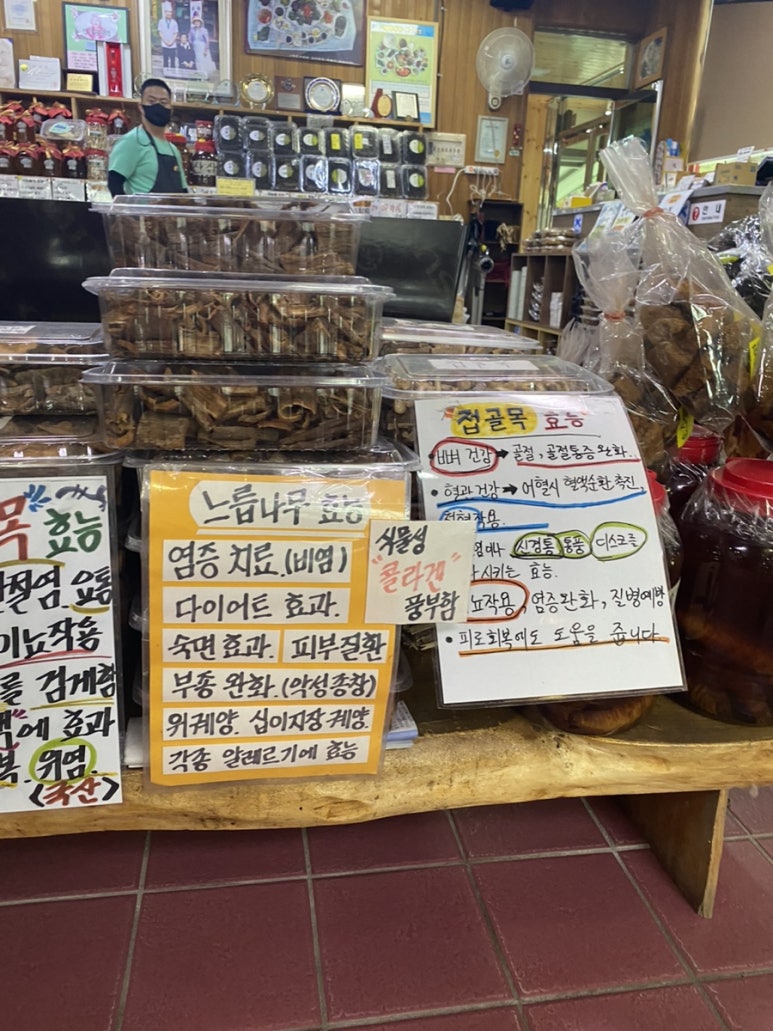 목 효능
관절염. 요통
이뇨작용
를 검게함
액에 효과
복. 위염.
<국산>
느릅나무 효능
염증 치료.(비염)
다이어트 효과.
숙면효과. 피부질환
부종 완화.(악성종창)
위궤양. 십이지장궤양.
각종 알레르기에 효능
식물성
"콜라겐"
풍부함
접골목 효능
• 뼈 건강 → 골절, 골절통증 완화..
• 혈과 건강 → 어혈시 혈액순환 촉진,
작용.
신경통 통풍 디스크를
시키는 효능.
뇨작용, 염증완화, 질병예방
• 피로회복에도 도움을 줍니다
안내